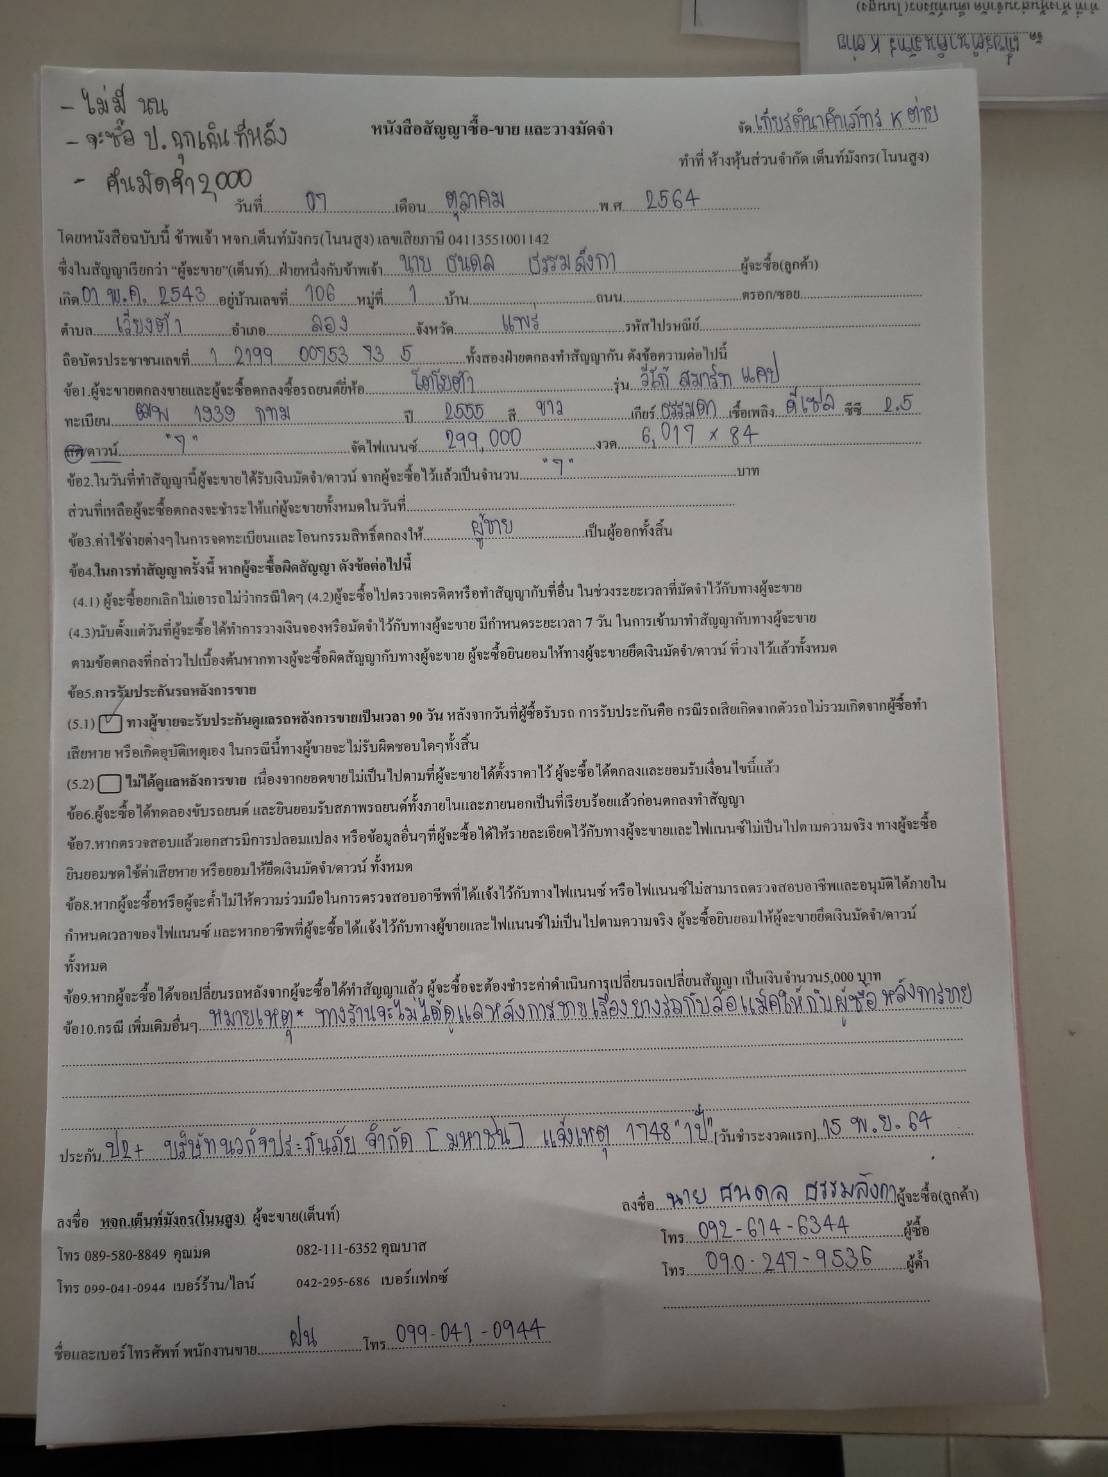 - ไม่มี นน
- จะซื้อ ป. ฉุกเฉิน ทีหลัง
- คืนมัดจำ 2,000
หนังสือสัญญาซื้อ-ขาย และวางมัดจำ
จัด เกียรตินาคินภัทร K ต่าย
ทำที่ ห้างหุ้นส่วนจำกัด เต็นท์มังกร(โนนสูง)
วันที่ 07 เดือน ตุลาคม พ.ศ. 2564
โดยหนังสือฉบับนี้ ข้าพเจ้า หจก.เต็นท์มังกร(โนนสูง) เลขเสียภาษี 04113551001142
ซึ่งในสัญญาเรียกว่า "ผู้จะขาย"(เต็นท์) ฝ่ายหนึ่งกับข้าพเจ้า นาย ธนดล ธรรมลังกา ผู้จะซื้อ(ลูกค้า)
เกิด 01 พ.ค. 2543 อยู่บ้านเลขที่ 106 หมู่ที่ 1 บ้าน ถนน ตรอก/ซอย
ตำบล เวียงต้า อำเภอ ลอง จังหวัด แพร่ รหัสไปรษณีย์
ถือบัตรประชาชนเลขที่ 1 2199 00753 73 5 ทั้งสองฝ่ายตกลงทำสัญญากัน ดังข้อความต่อไปนี้
ข้อ1.ผู้จะขายตกลงขายและผู้จะซื้อตกลงซื้อรถยนต์ยี่ห้อ โตโยต้า รุ่น วีโก้ สมาร์ท แคป
ทะเบียน 1939 กทม ปี 2555 สี ขาว เกียร์ ธรรมดา เชื้อเพลิง ดีเซล ซีซี 2.5
สด/ดาวน์ "7" จัดไฟแนนซ์ 299,000 งวด 6,017 x 84
ข้อ2.ในวันที่ทำสัญญานี้ผู้จะขายได้รับเงินมัดจำ/ดาวน์ จากผู้จะซื้อไว้แล้วเป็นจำนวน "7" บาท
ส่วนที่เหลือผู้จะซื้อตกลงจะชำระให้แก่ผู้จะขายทั้งหมดในวันที่
ข้อ3.ค่าใช้จ่ายต่างๆในการจดทะเบียนและโอนกรรมสิทธิ์ตกลงให้ ผู้ขาย เป็นผู้ออกทั้งสิ้น
ข้อ4.ในการทำสัญญาครั้งนี้ หากผู้จะซื้อผิดสัญญา ดังข้อต่อไปนี้
(4.1) ผู้จะซื้อยกเลิกไม่เอารถไม่ว่ากรณีใดๆ (4.2)ผู้จะซื้อไปตรวจเครดิตหรือทำสัญญากับที่อื่น ในช่วงระยะเวลาที่มัดจำไว้กับทางผู้จะขาย
(4.3)นับตั้งแต่วันที่ผู้จะซื้อได้ทำการวางเงินจองหรือมัดจำไว้กับทางผู้จะขาย มีกำหนดระยะเวลา 7 วัน ในการเข้ามาทำสัญญากับทางผู้จะขาย
ตามข้อตกลงที่กล่าวไปเบื้องต้นหากทางผู้จะซื้อผิดสัญญากับทางผู้จะขาย ผู้จะซื้อยินยอมให้ทางผู้จะขายยึดเงินมัดจำ/ดาวน์ ที่วางไว้แล้วทั้งหมด
ข้อ5.การรับประกันรถหลังการขาย
(5.1) ทางผู้ขายจะรับประกันดูแลรถหลังการขายเป็นเวลา 90 วัน หลังจากวันที่ผู้ซื้อรับรถ การรับประกันคือ กรณีรถเสียเกิดจากตัวรถไม่รวมเกิดจากผู้ซื้อทำ
เสียหาย หรือเกิดอุบัติเหตุเอง ในกรณีนี้ทางผู้ขายจะไม่รับผิดชอบใดๆทั้งสิ้น
(5.2) ไม่ได้ดูแลหลังการขาย เนื่องจากยอดขายไม่เป็นไปตามที่ผู้จะขายได้ตั้งราคาไว้ ผู้จะซื้อได้ตกลงและยอมรับเงื่อนไขนี้แล้ว
ข้อ6.ผู้จะซื้อได้ทดลองขับรถยนต์ และยินยอมรับสภาพรถยนต์ทั้งภายในและภายนอกเป็นที่เรียบร้อยแล้วก่อนตกลงทำสัญญา
ข้อ7.หากตรวจสอบแล้วเอกสารมีการปลอมแปลง หรือข้อมูลอื่นๆที่ผู้จะซื้อได้ให้รายละเอียดไว้กับทางผู้จะขายและไฟแนนซ์ไม่เป็นไปตามความจริง ทางผู้จะซื้อ
ยินยอมชดใช้ค่าเสียหาย หรือยอมให้ยึดเงินมัดจำ/ดาวน์ ทั้งหมด
ข้อ8.หากผู้จะซื้อหรือผู้จะค้ำไม่ให้ความร่วมมือในการตรวจสอบอาชีพที่ได้แจ้งไว้กับทางไฟแนนซ์ หรือไฟแนนซ์ไม่สามารถตรวจสอบอาชีพและอนุมัติได้ภายใน
กำหนดเวลาของไฟแนนซ์ และหากอาชีพที่ผู้จะซื้อได้แจ้งไว้กับทางผู้ขายและไฟแนนซ์ไม่เป็นไปตามความจริง ผู้จะซื้อยินยอมให้ผู้จะขายยึดเงินมัดจำ/ดาวน์
ทั้งหมด
ข้อ9.หากผู้จะซื้อได้ขอเปลี่ยนรถหลังจากผู้จะซื้อได้ทำสัญญาแล้ว ผู้จะซื้อจะต้องชำระค่าดำเนินการเปลี่ยนรถเปลี่ยนสัญญา เป็นเงินจำนวน5,000 บาท
ข้อ10.กรณี เพิ่มเติมอื่นๆ หมายเหตุ* ทางร้านจะไม่ได้ดูแลหลังการขายเรื่องยางรถกับล้อแม็คให้กับผู้ซื้อ หลังการขาย
ประกัน ป2+ บริษัทนวกิจประกันภัย จำกัด [มหาชน] แจ้งเหตุ 1748 "1ปี" [วันชำระงวดแรก] 15 พ.ย. 64
ลงชื่อ หจก.เต็นท์มังกร(โนนสูง) ผู้จะขาย(เต็นท์) ลงชื่อ นาย ธนดล ธรรมลังกา ผู้จะซื้อ(ลูกค้า)
โทร 092-614-6344 ผู้ซื้อ
โทร 089-580-8849 คุณมด 082-111-6352 คุณบาส
โทร 090-247-9536 ผู้ค้ำ
โทร 099-041-0944 เบอร์ร้าน/ไลน์ 042-295-686 เบอร์แฟกซ์
ชื่อและเบอร์โทรศัพท์ พนักงานขาย ฝน โทร 099-041-0944